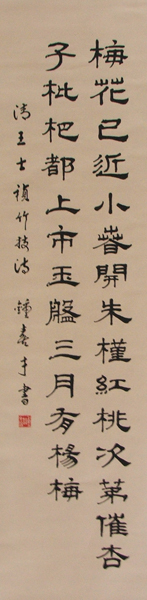 梅花已近小萅開朱槿紅桃次第催杏
子枇杷都上市玉盤三月有楊梅
清王士禎竹枝詩 書